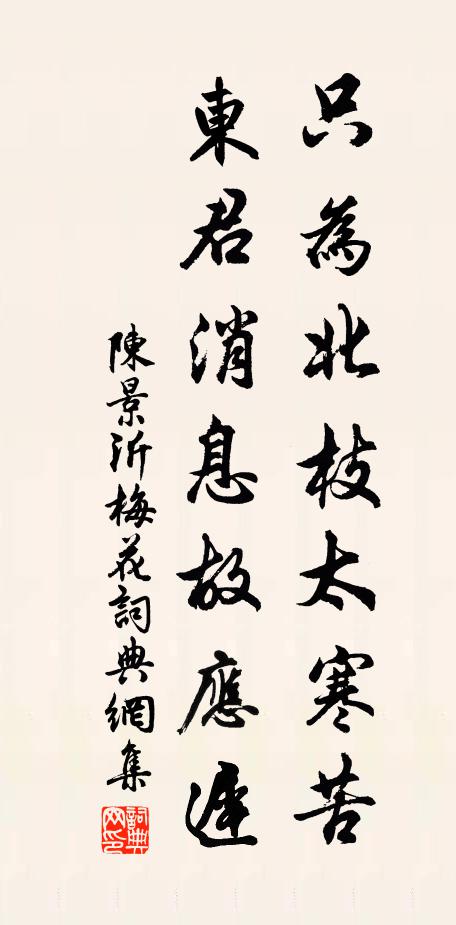 只為北枝太寒苦
東君消息故應遲
陳景沂梅花詞典網集
詞典網印